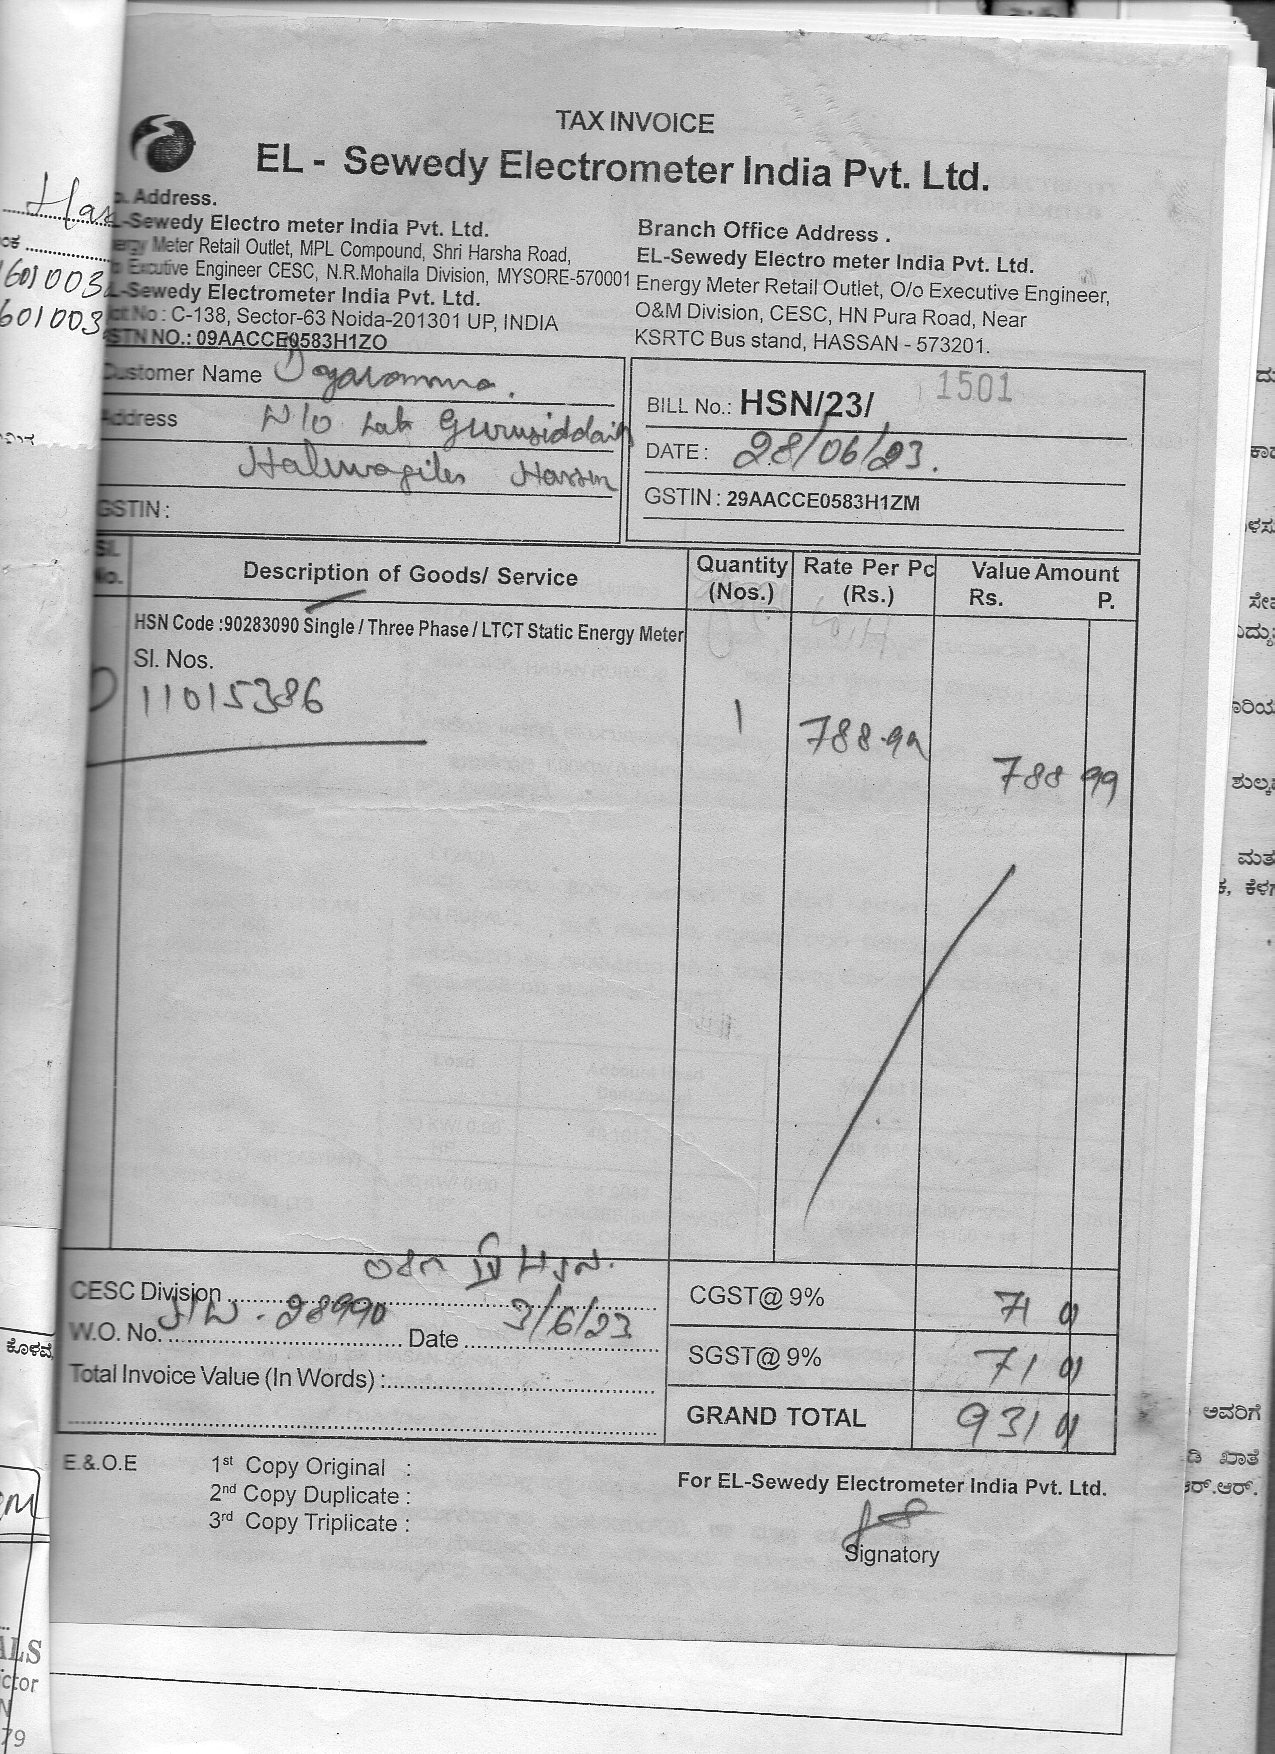 TAX INVOICE
EL - Sewedy Electrometer India Pvt. Ltd.
Address.
-Sewedy Electro meter India Pvt. Ltd.
Meter Retail Outlet, MPL Compound, Shri Harsha Road,
Excutive Engineer CESC, N.R.Mohalla Division, MYSORE-570001
-Sewedy Electrometer India Pvt. Ltd.
No : C-138, Sector-63 Noida-201301 UP, INDIA
GSTN NO.: 09AACCE0583H1ZO
Branch Office Address .
EL-Sewedy Electro meter India Pvt. Ltd.
Energy Meter Retail Outlet, O/o Executive Engineer,
O&M Division, CESC, HN Pura Road, Near
KSRTC Bus stand, HASSAN - 573201.
Customer Name
Address W/o Late Gurusiddaih
Hassan
GSTIN :
BILL No.: HSN/23/ 1501
DATE : 28/06/23.
GSTIN : 29AACCE0583H1ZM
Sl. No. Description of Goods/ Service Quantity (Nos.) Rate Per Pc (Rs.) Value Amount Rs. P.
HSN Code :90283090 Single / Three Phase / LTCT Static Energy Meter
Sl. Nos.
11015386 1 788.99 788 99
CESC Division
W.O. No. 28990 Date 3/6/23
Total Invoice Value (In Words) :
CGST@ 9% 71 01
SGST@ 9% 71 01
GRAND TOTAL 931 01
E.&.O.E
1st Copy Original :
2nd Copy Duplicate :
3rd Copy Triplicate :
For EL-Sewedy Electrometer India Pvt. Ltd.
Signatory